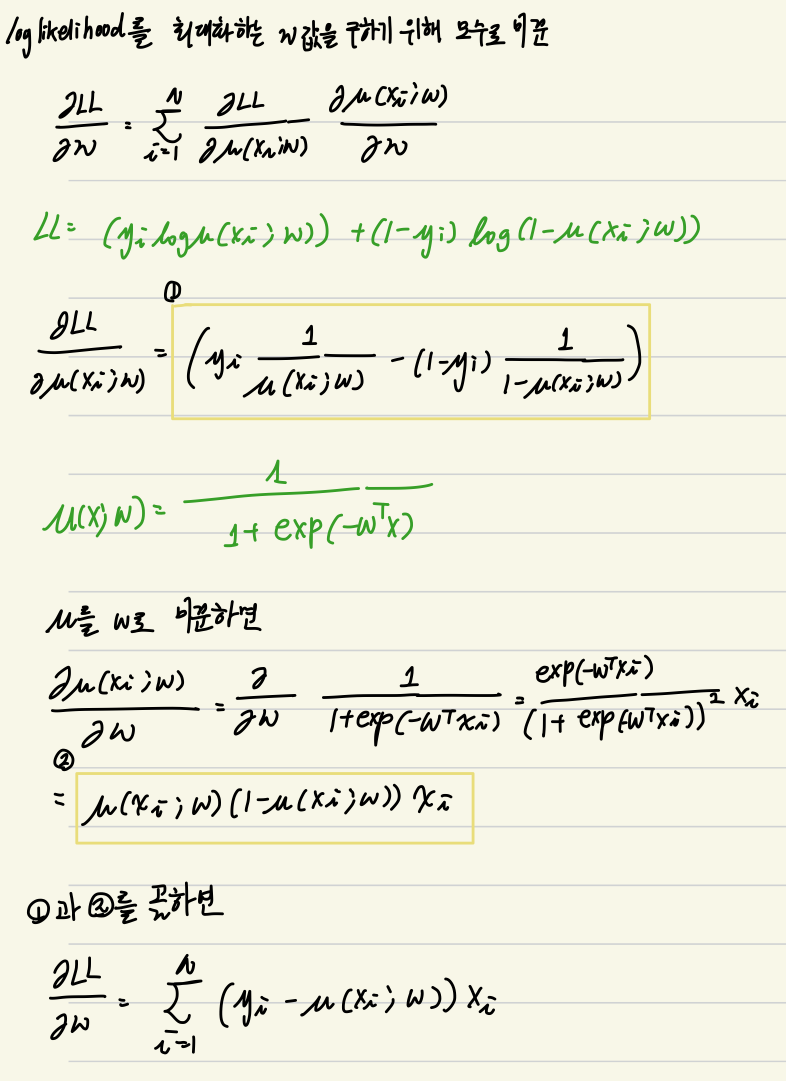 log likelihood를 최대화하는 w값을 구하기 위해 모수로 미분
∂LL/∂w = Σ_{i=1}^{N} ∂LL/∂μ(xᵢ;w) ∂μ(xᵢ;w)/∂w
LL = (yᵢ log μ(xᵢ;w)) + (1-yᵢ) log(1-μ(xᵢ;w))
①
∂LL/∂μ(xᵢ;w) = (yᵢ 1/μ(xᵢ;w) - (1-yᵢ) 1/(1-μ(xᵢ;w)))
μ(x;w) = 1/(1+exp(-wᵀx))
μ를 w로 미분하면
∂μ(xᵢ;w)/∂w = ∂/∂w 1/(1+exp(-wᵀxᵢ)) = exp(-wᵀxᵢ)/(1+exp(-wᵀxᵢ))² xᵢ
②
= μ(xᵢ;w)(1-μ(xᵢ;w)) xᵢ
①과 ②를 곱하면
∂LL/∂w = Σ_{i=1}^{N} (yᵢ - μ(xᵢ;w)) xᵢ